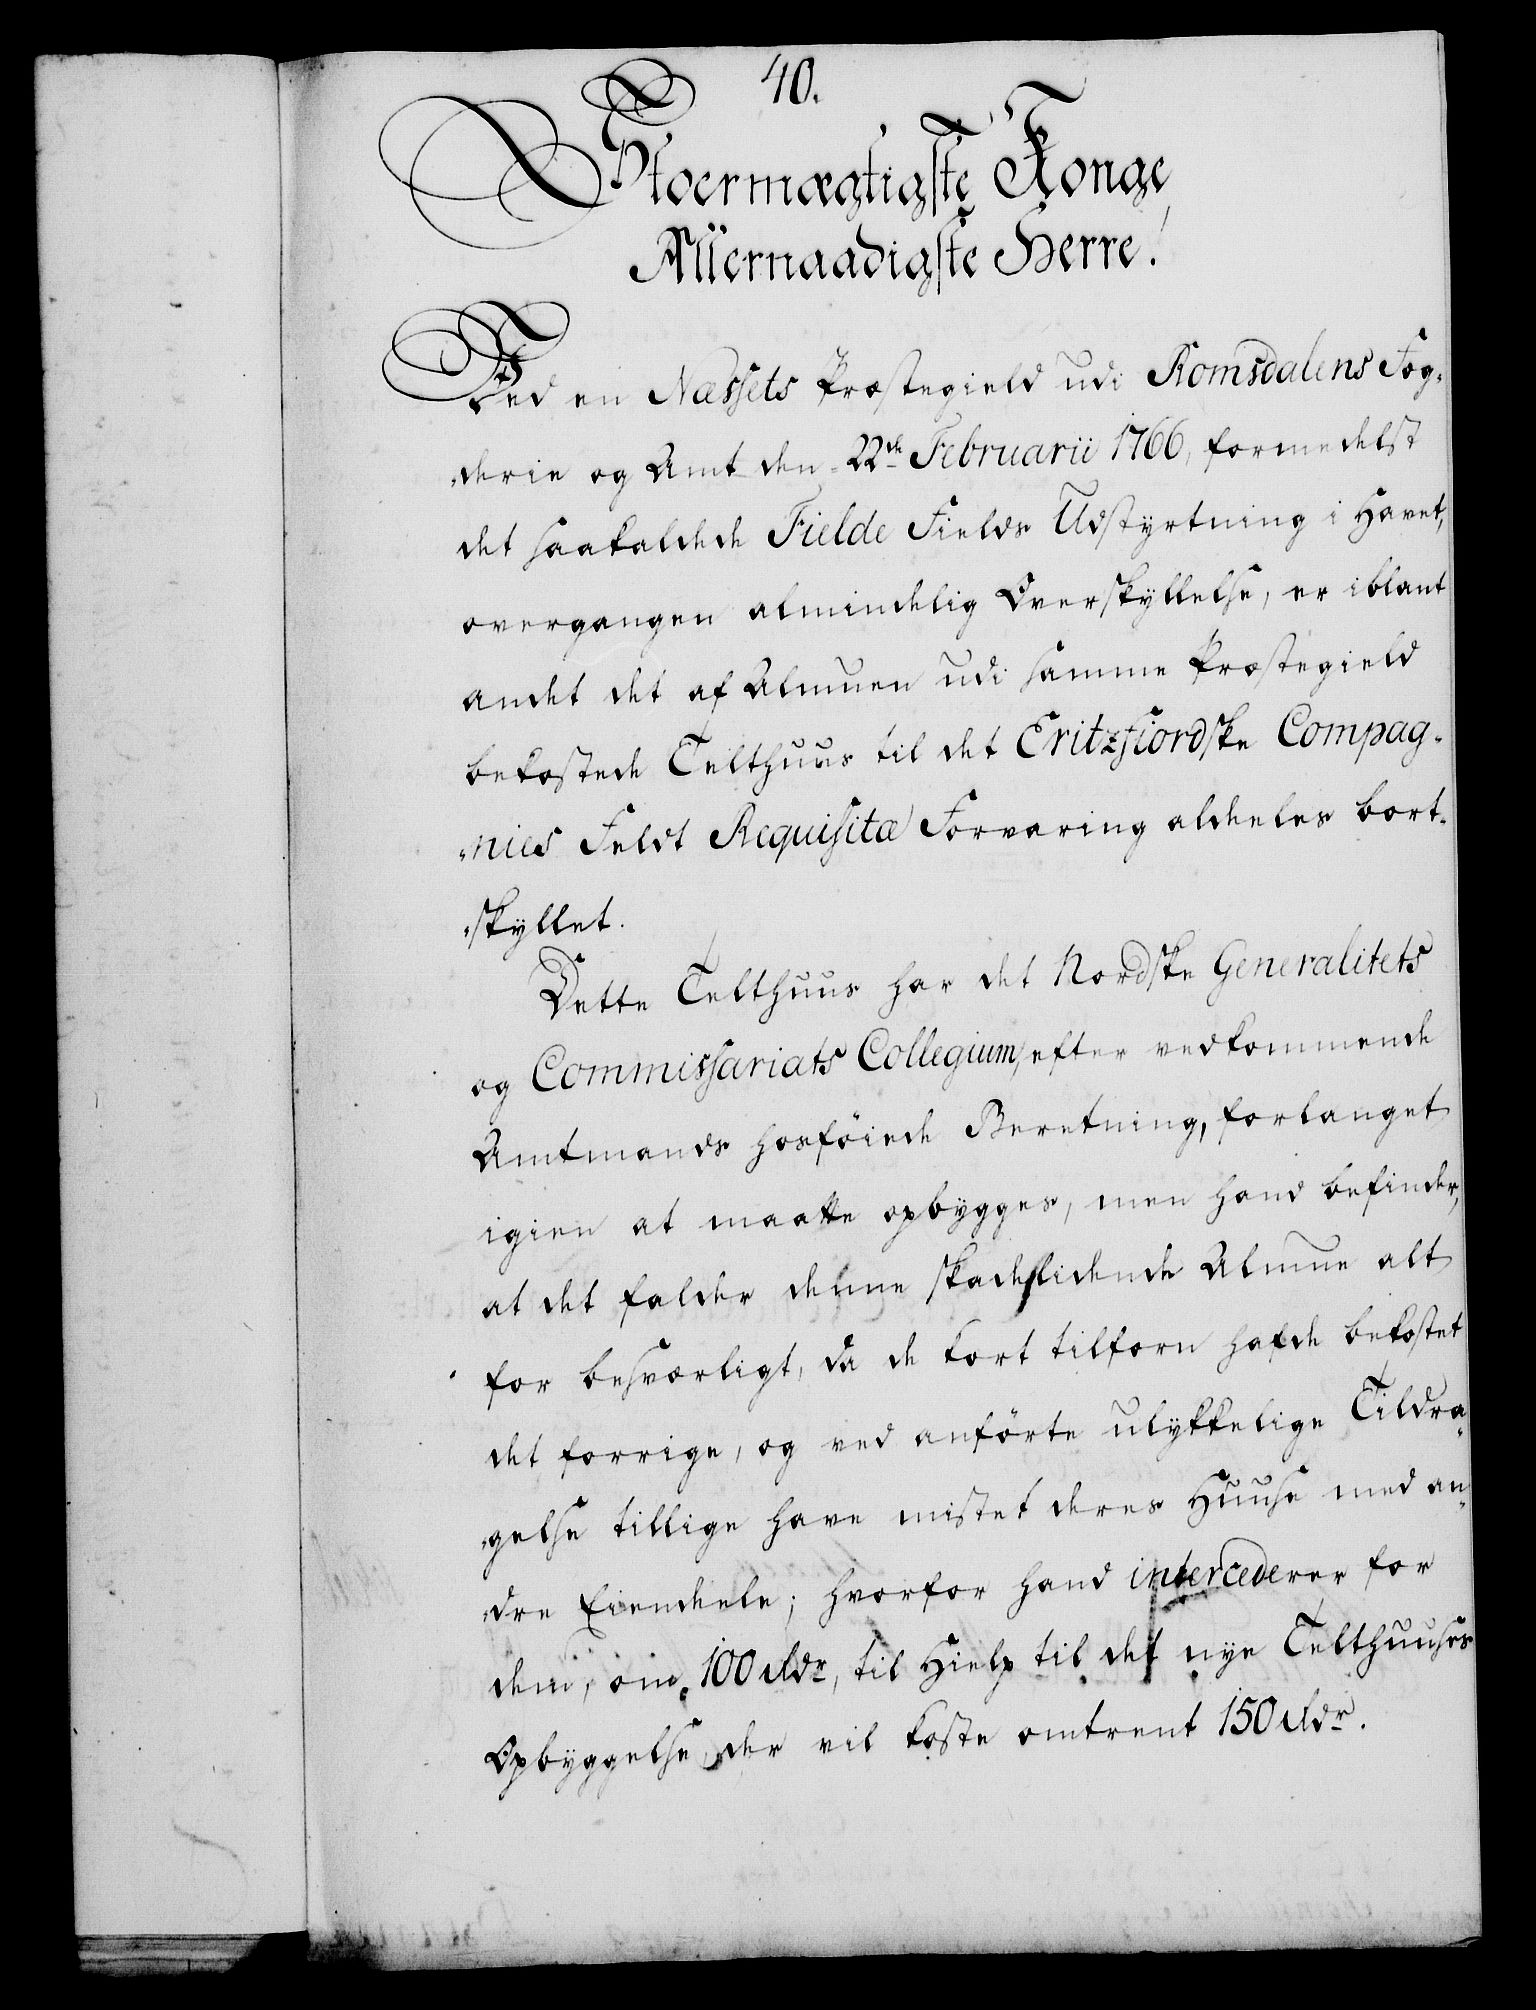 40.
Stoermægtigste Konge
Allernaadigste Herre!
Ved en Næssets Præstegield udi Romsdalens Fog-
derie og Amt den 22de Februarii 1766, formedelst
det saakaldede Fielde Fields Udstyrtning i Havet,
overgangen almindelig Overskyllelse, er iblant
andet det af Almuen udi samme Præstegield
bekostede Telthuus til det Eritzfiordske Compag-
nies Feldt Requisitæ Forvaring aldeeles bort-
skyllet.
Dette Telthuus har det Nordske Generalitets
og Commissariats Collegium, efter vedkommende
Amtmands hosföiede Beretning, forlanget
igien at maatte opbygges, men hand befinder,
at det falder denne skadeslidende Almue alt
for besværligt, da de kort tilforn hafde bekostet
det forrige, og ved anförte ulykkelige Tildra-
gelse tillige have mistet deres Huuse med an-
dre Eiendeele; hvorfor hand intercederer for
dem, om 100 Rdr, til Hielp til det nye Telthuuses
Opbyggelse, der vil koste omtrent 150 Rdr.